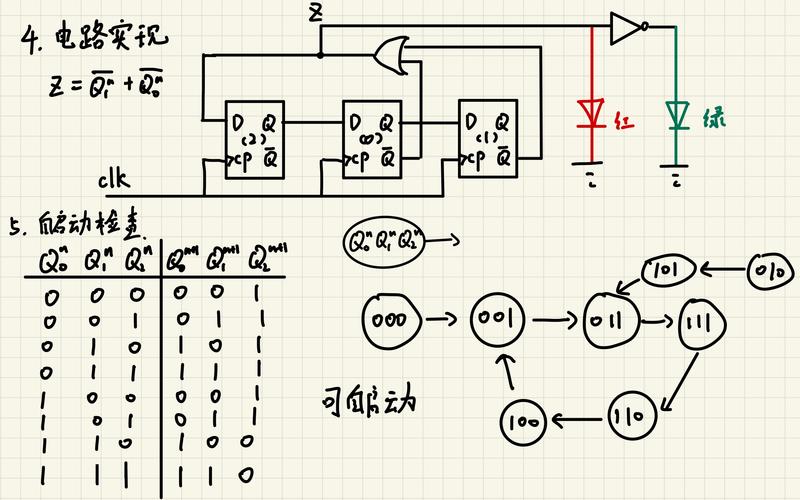 4. 电路实现
Z = Q̅₁ⁿ + Q̅₀ⁿ
Z
D Q
(2)
CP Q̅
D Q
(0)
CP Q̅
D Q
(1)
CP Q̅
clk
红
绿
5. 自启动检查
Q₀ⁿ Q₁ⁿ Q₂ⁿ Q₀ⁿ⁺¹ Q₁ⁿ⁺¹ Q₂ⁿ⁺¹
0 0 0 0 0 1
0 0 1 0 1 1
0 1 0 1 0 1
0 1 1 1 1 1
1 0 0 0 0 1
1 0 1 0 1 1
1 1 0 1 0 0
1 1 1 1 1 0
Q₀ⁿQ₁ⁿQ₂ⁿ
101
010
000
001
011
111
100
110
可自启动